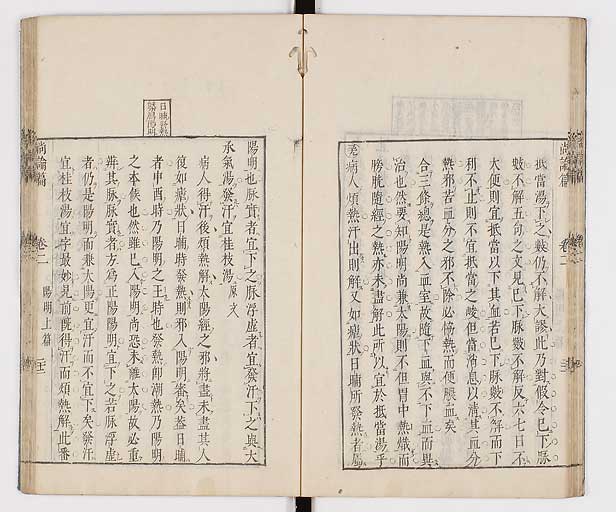 尚論篇
卷二
抵當湯下之數仍不解大謬此乃對假令已下脉
數不解五句之文見已下脉數不解反六七日不
大便則宜抵當以下其血若已下脉數不解而下
利不止則不宜抵當之峻但當消息以清其血分
熱邪若血分之邪不除必協熱而便膿血矣
合三條總是熱入血室故隨下血與不下血而異
治也然要知陽明尚兼太陽則不但胃中熱熾而
膀胱隨經之熱亦未盡解此所以宜於抵當湯乎
病人煩熱汗出則解又如瘧狀日晡所發熱者屬
陽明也脉實者宜下之脉浮虛者宜發汗下之與大
承氣湯發汗宜桂枝湯原文
病人得汗後煩熱解太陽經之邪將盡未盡其人
復如瘧狀日晡時發熱則邪入陽明審矣葢日晡
者申酉時乃陽明之王時也發熱即潮熱乃陽明
之本候也然雖已入陽明尚恐未離太陽故必重
辨其脉脉實者方為正陽陽明宜下之若脉浮虛
者仍是陽明而兼太陽更宜汗而不宜下矣發汗
宜桂枝湯宜字最妙見前旣得汗而煩熱解此番
尚論篇
卷二
陽明上篇